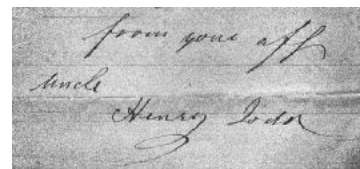 from your aff
uncle
Henry Todd